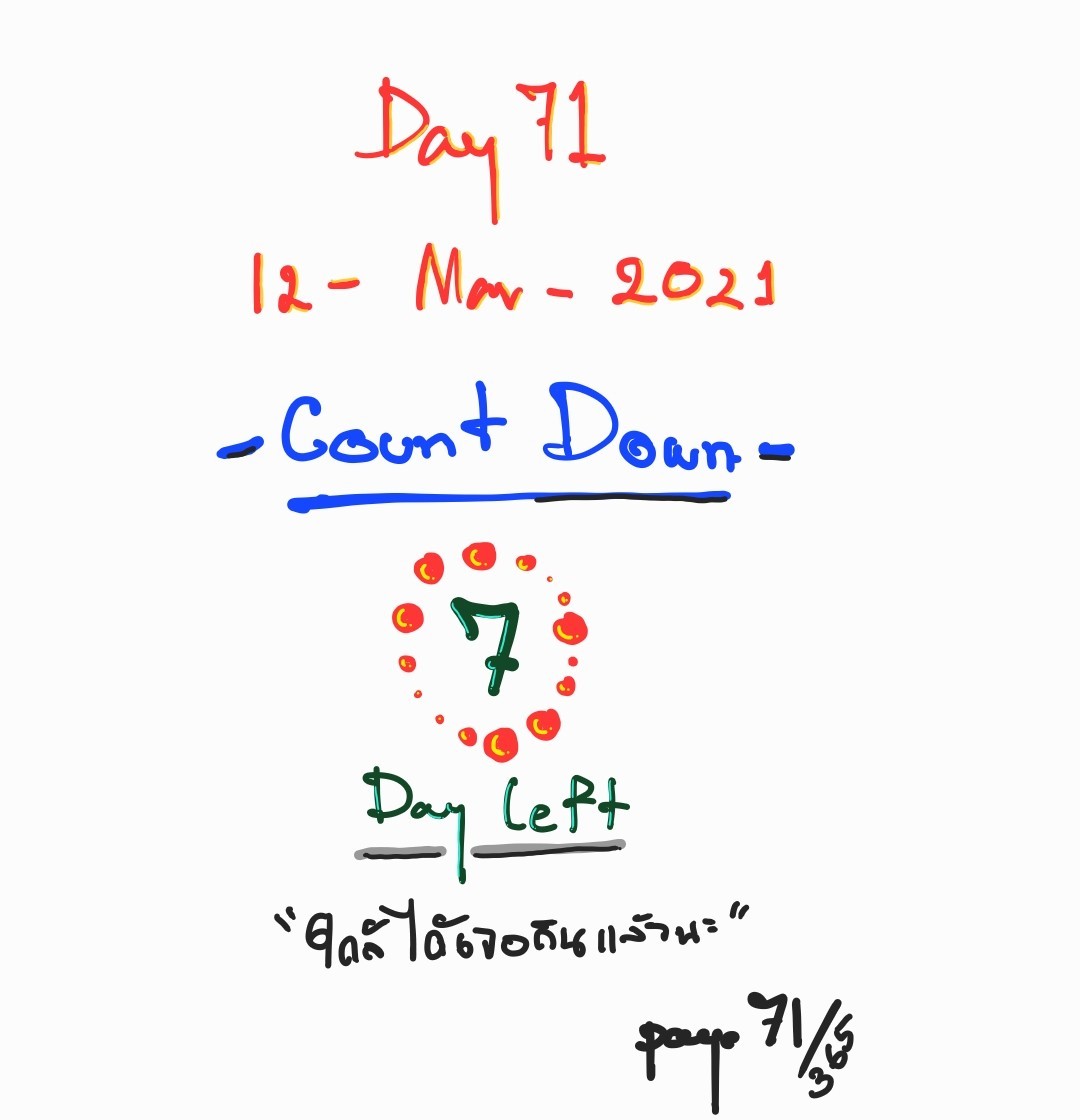 Day 71
12 - Mar - 2021
- Count Down -
7
Day left
"ใกล้ได้เจอกันแล้วนะ"
page 71/365